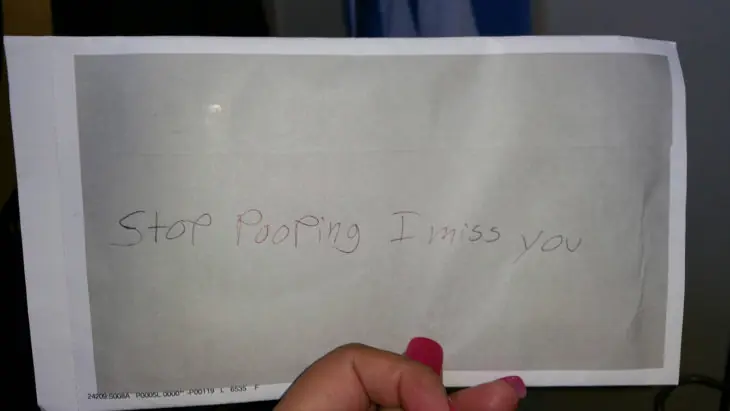 Stop Pooping I miss you
24209 5008A P0005L 0000" -P00119 L 6535 F